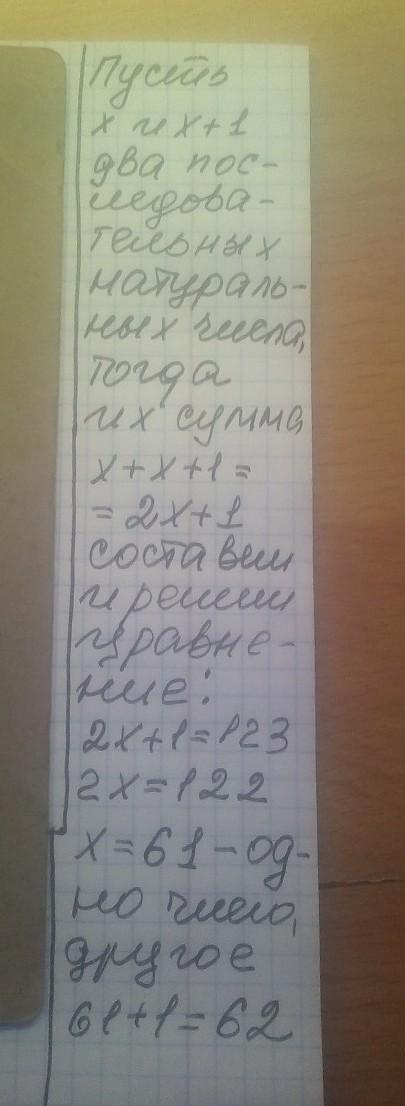 Пусть
х и х+1
два пос-
ледова-
тельных
натураль-
ных числа,
тогда
их сумма
х+х+1=
=2х+1
составим
и решим
уравне-
ние:
2х+1=123
2х=122
х=61-од-
но число,
другое
61+1=62